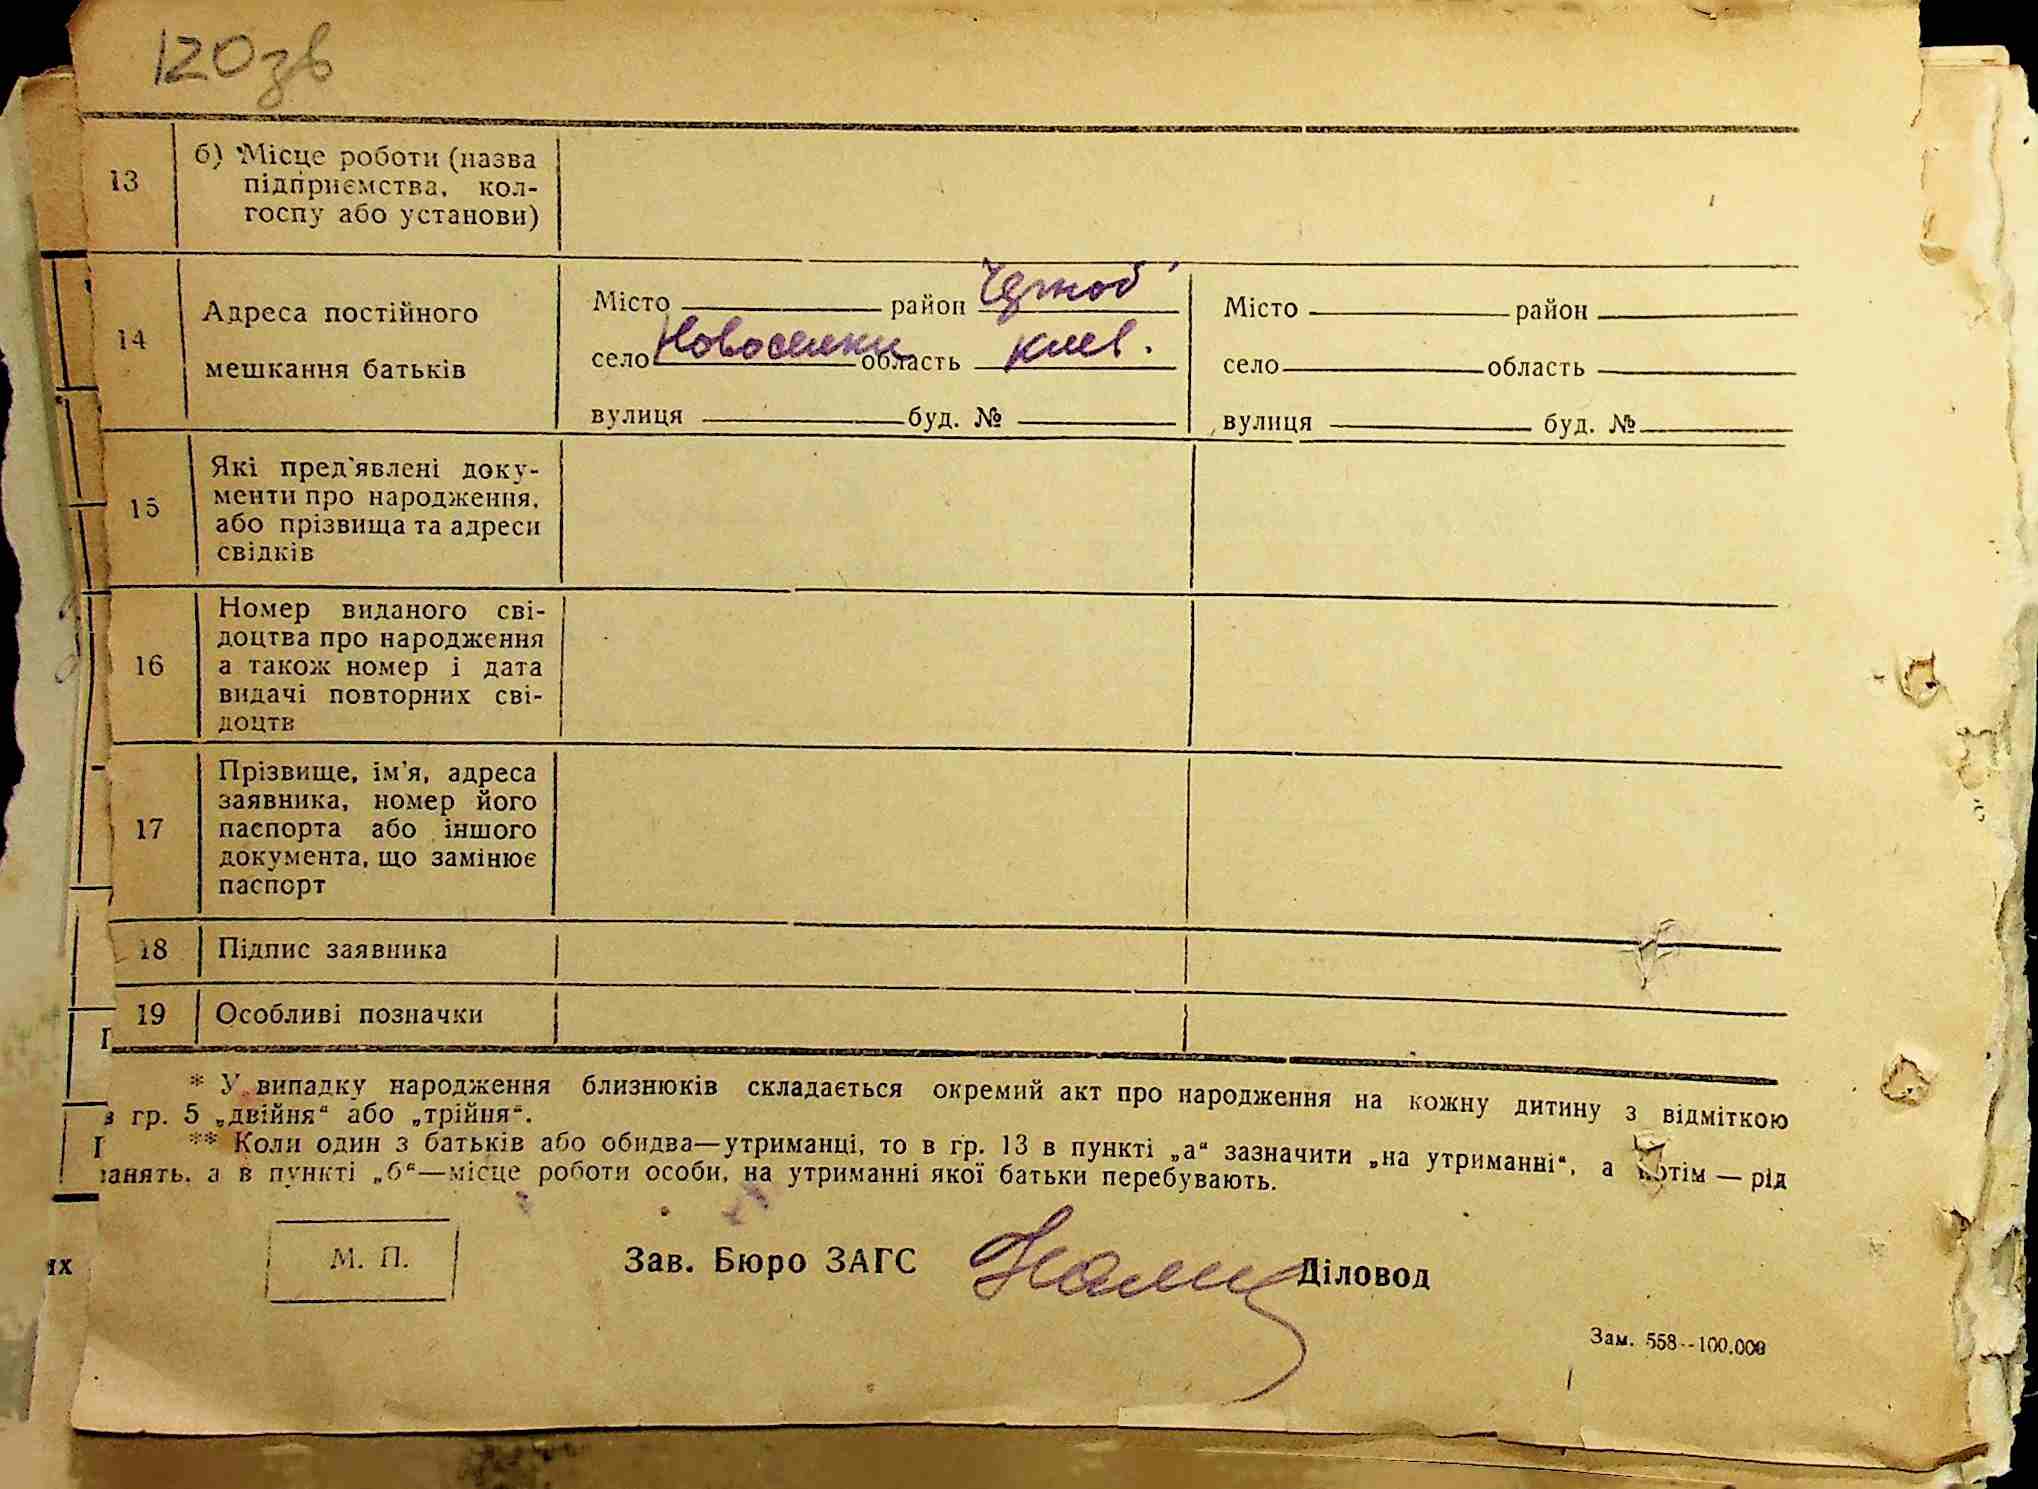 120зв
13
б) Місце роботи (назва
підприємства, кол-
госпу або установи)
14
Адреса постійного
мешкання батьків
Місто район Черноб
село Новоселки область Киев.
вулиця буд. №
Місто район
село область
вулиця буд. №
15
Які пред'явлені доку-
менти про народження,
або прізвища та адреси
свідків
16
Номер виданого сві-
доцтва про народження
а також номер і дата
видачі повторних сві-
доцтв
17
Прізвище, ім'я, адреса
заявника, номер його
паспорта або іншого
документа, що замінює
паспорт
18 Підпис заявника
19 Особливі позначки
* У випадку народження близнюків складається окремий акт про народження на кожну дитину з відміткою
в гр. 5 „двійня“ або „трійня“.
** Коли один з батьків або обидва—утриманці, то в гр. 13 в пункті „а“ зазначити „на утриманні“, а потім — рід
занять, а в пункті „б“—місце роботи особи, на утриманні якої батьки перебувають.
М. П.
Зав. Бюро ЗАГС
Діловод
Зам. 558--100.000